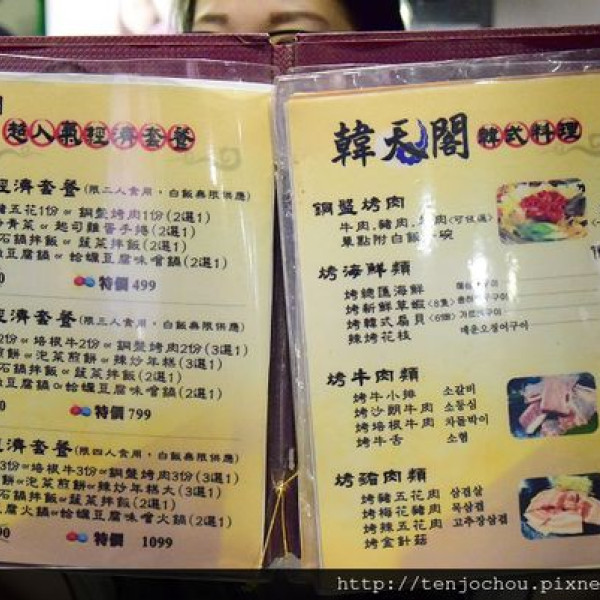 超人氣經濟套餐
經濟套餐(限二人食用,白飯無限供應)
豬五花1份or銅盤烤肉1份(2選1)
青菜or起司雞蛋手捲(2選1)
石鍋拌飯or蔬菜拌飯(2選1)
豆腐鍋or蛤蠣豆腐味噌鍋(2選1)
特價 499
經濟套餐(限三人食用,白飯無限供應)
2份or培根牛2份or銅盤烤肉2份(3選1)
煎餅or泡菜煎餅or辣炒年糕(3選1)
石鍋拌飯or蔬菜拌飯(2選1)
豆腐鍋or蛤蠣豆腐味噌鍋(2選1)
特價 799
經濟套餐(限四人食用,白飯無限供應)
3份or培根牛3份or銅盤烤肉3份(3選1)
餅or泡菜煎餅or辣炒年糕大(3選1)
石鍋拌飯or蔬菜拌飯(2選1)
豆腐火鍋or蛤蠣豆腐味噌火鍋(2選1)
特價 1099
韓天閣 韓式料理
銅盤烤肉
牛肉,豬肉,
單點附白飯一碗
烤海鮮類
烤總匯海鮮
烤新鮮草蝦<8隻>
烤韓式扇貝<6個>
辣烤花枝 매운오징어구이
烤牛肉類
烤牛小排 소갈비
烤沙朗牛肉 소등심
烤培根牛肉 차돌박이
烤牛舌 소혀
烤豬肉類
烤豬五花肉 삼겹살
烤梅花豬肉 목삼겹
烤辣五花肉 고추장삼겹
烤金針菇
http://tenjochou.pixne